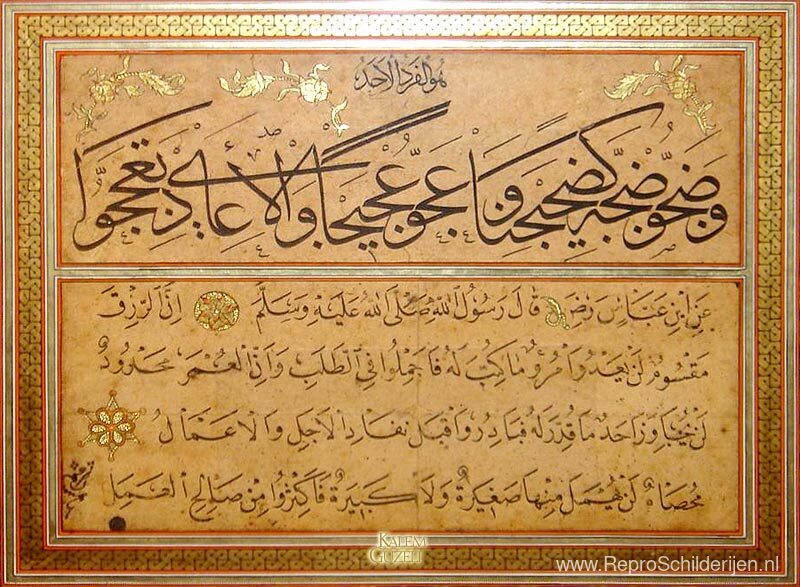 هو الفرد الاحد
وضجوا ضجة كضجيجنا عجوا عجيجا والاعادي
عن ابن عباس رضه قال رسول الله صلى الله عليه وسلم ان الرزق
مقسوم لن يعدوا مرؤ ما كتب له فاجملوا في الطلب وان العمر محدود
لن يجاوز احد ما قدر له فبادروا قبل نفاد الاجل والاعمال
محصاة لن يهمل منها صغيرة ولا كبيرة فاكثروا من صالح العمل
KALEM
GUZELI
www.ReproSchilderijen.nl